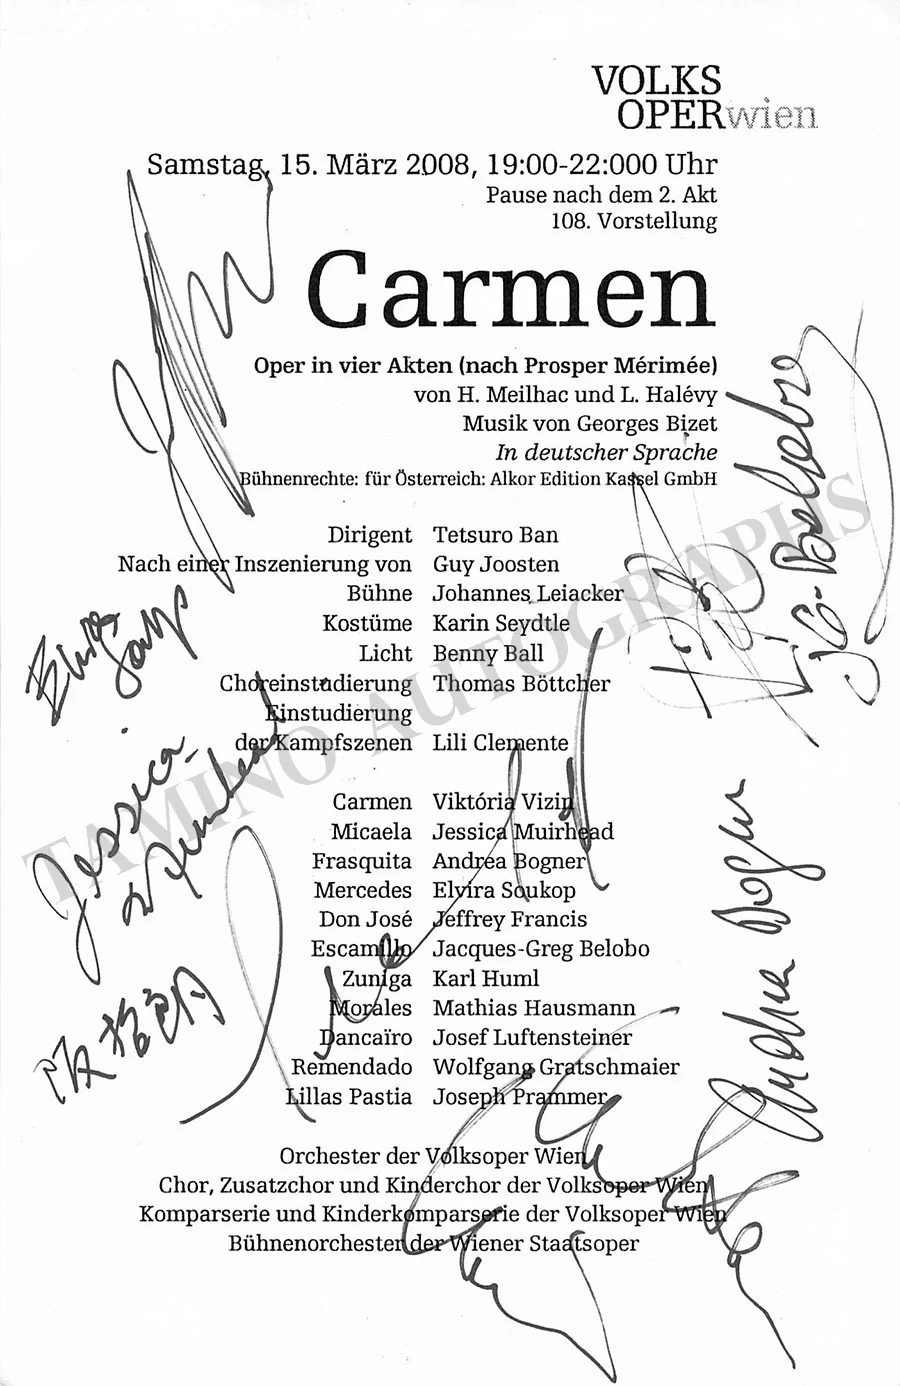 VOLKS
OPERwien
Samstag, 15. März 2008, 19:00-22:000 Uhr
Pause nach dem 2. Akt
108. Vorstellung
Carmen
Oper in vier Akten (nach Prosper Mérimée)
von H. Meilhac und L. Halévy
Musik von Georges Bizet
In deutscher Sprache
Bühnenrechte: für Österreich: Alkor Edition Kassel GmbH
Dirigent Tetsuro Ban
Nach einer Inszenierung von Guy Joosten
Bühne Johannes Leiacker
Kostüme Karin Seydtle
Licht Benny Ball
Choreinstudierung Thomas Böttcher
Einstudierung
der Kampfszenen Lili Clemente
Carmen Viktória Vizin
Micaela Jessica Muirhead
Frasquita Andrea Bogner
Mercedes Elvira Soukop
Don José Jeffrey Francis
Escamillo Jacques-Greg Belobo
Zuniga Karl Huml
Morales Mathias Hausmann
Dancaïro Josef Luftensteiner
Remendado Wolfgang Gratschmaier
Lillas Pastia Joseph Prammer
Orchester der Volksoper Wien
Chor, Zusatzchor und Kinderchor der Volksoper Wien
Komparserie und Kinderkomparserie der Volksoper Wien
Bühnenorchester der Wiener Staatsoper
Jessica Muirhead
Andrea Bogner
JG. Belobo
阪哲朗
TAMINO AUTOGRAPHS